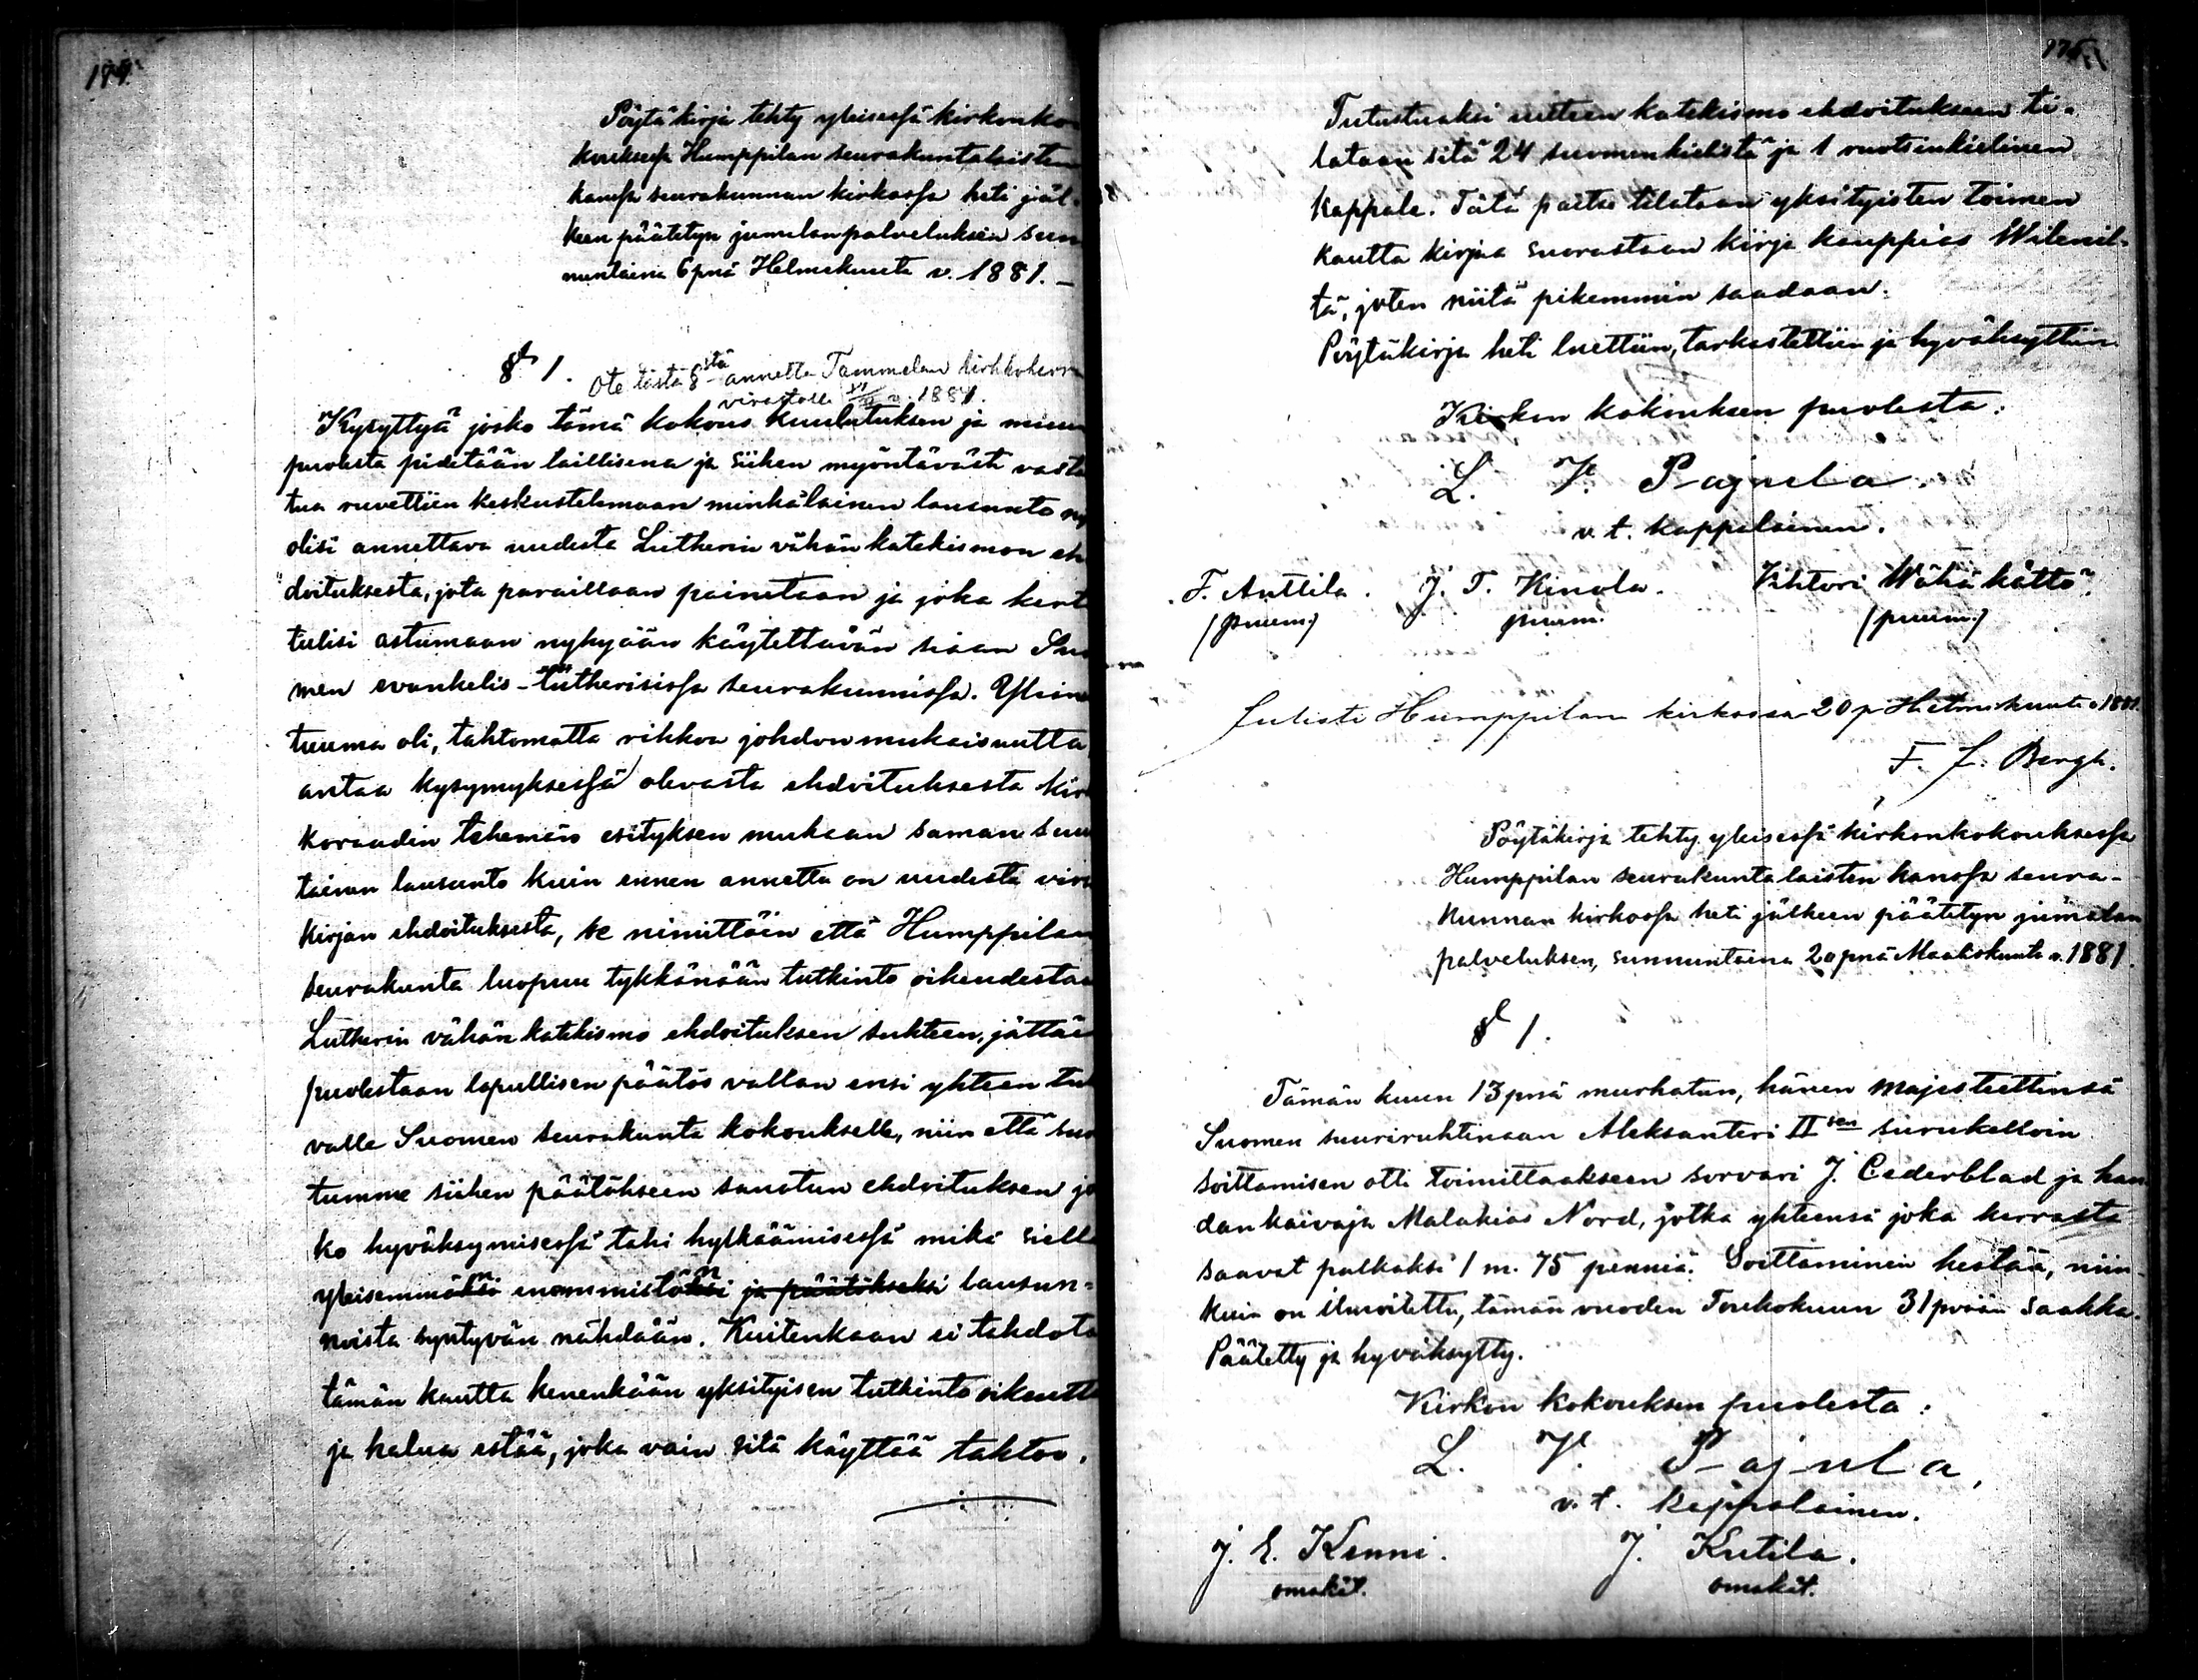 Pöytäkirja tehty yleisessä kirkonko
kouksessa Humppilan seurakuntalaisten
kanssa seurakunnan kirkossa heti jäl-
keen päätetyn jumalanpalveluksen sun
nuntaina 6 pnä Helmekuuta v. 1881. –
§ 1.
Ote tästä §stä annettu Tammelan kirkkoherra
virastolle v. 1881.
Kysyttyä josko tämä kokous kuulutuksen ja muun
puolesta pidetään laillisena ja siihen myöntävästi vasta
tua ruvettiin keskustelemaan minkälainen lausunto ny
olisi annettava uudesta Lutherin vähän katekismon eh
doituksesta, jota paraillaan painetaan ja joka kert
tulisi astumaan nykyään käytettävän siaan Suo
men evankelis-lutherisissa seurakunnissa. Ylein
tuuma oli, tahtomatta rikkoa johdonmukaisuutta,
antaa kysymyksessä olevasta ehdoituksesta kir
koraadin tekemän esityksen mukaan saman suu
tainen lausunto kuin ennen annettu on uudesta virsi
kirjan ehdoituksesta, se nimittäin että Humppilan
seurakunta luopuu tykkänään tutkinto oikeudestaa
Lutherin vähän katekismo ehdoituksen suhteen, jättäe
puolestaan lopullisen päätös vallan ensi yhteen tul
valle Suomen seurakunta kokoukselle, niin että suo
tumme siihen päätökseen sanotun ehdoituksen jo
ko hyväksymisessä tahi hylkäämisessä mikä siellä
yleisemmän enemmistön ja päätökseksi lausun-
noista syntyvän nähdään. Kuitenkaan ei tahdota
tämän kautta kenenkään yksityisen tutkinto oikeutta
ja halua estää, joka vain sitä käyttää tahtoo.
Tutustuaksi uuteen katekismo ehdoitukseen ti-
lataan sitä 24 suomenkielistä ja 1 ruotsinkielinen
kappale. Tätä paitsi tilataan yksityisten toimen
kautta kirjaa suorastaan kirja kauppias Wilenil-
tä, joten niitä pikemmin saadaan.
Pöytäkirja heti luettiin, tarkastettiin ja hyväksyttiin.
Kirkon kokouksen puolesta:
L. V. Pajula.
v. t. kappalainen.
F. Anttila. J. T. Kinola. Vihtori Wähä hättö?
(puum.) puum. (puum.)
Julisti Humppilan kirkossa 20 p Helmikuuta 1881.
F. J. Bergh.
Pöytäkirja tehty yleisessä kirkonkokouksessa
Humppilan seurakuntalaisten kanssa seura-
kunnan kirkossa heti jälkeen päätetyn jumalan
palveluksen, sunnuntaina 20 pnä Maaliskuuta v. 1881.
§ 1.
Tämän kuun 13 pnä murhatun, hänen majesteettinsä
Suomen suuriruhtinaan Aleksanteri II sen surukelloin
soittamisen otti toimittaakseen sorvari J. Cederblad ja hau
dankaivaja Malakias Nord, jotka yhteensä joka kerrasta
saavat palkaksi 1 m. 75 penniä. Soittaminen kestää, niin-
kuin on ilmoitettu, tämän vuoden Toukokuun 31 pvään saakka.
Päätetty ja hyväksytty.
Kirkon kokouksen puolesta:
L. V. Pajula,
v. t. kappalainen.
J. E. Kenni. J. Kutila.
omakät. omakät.